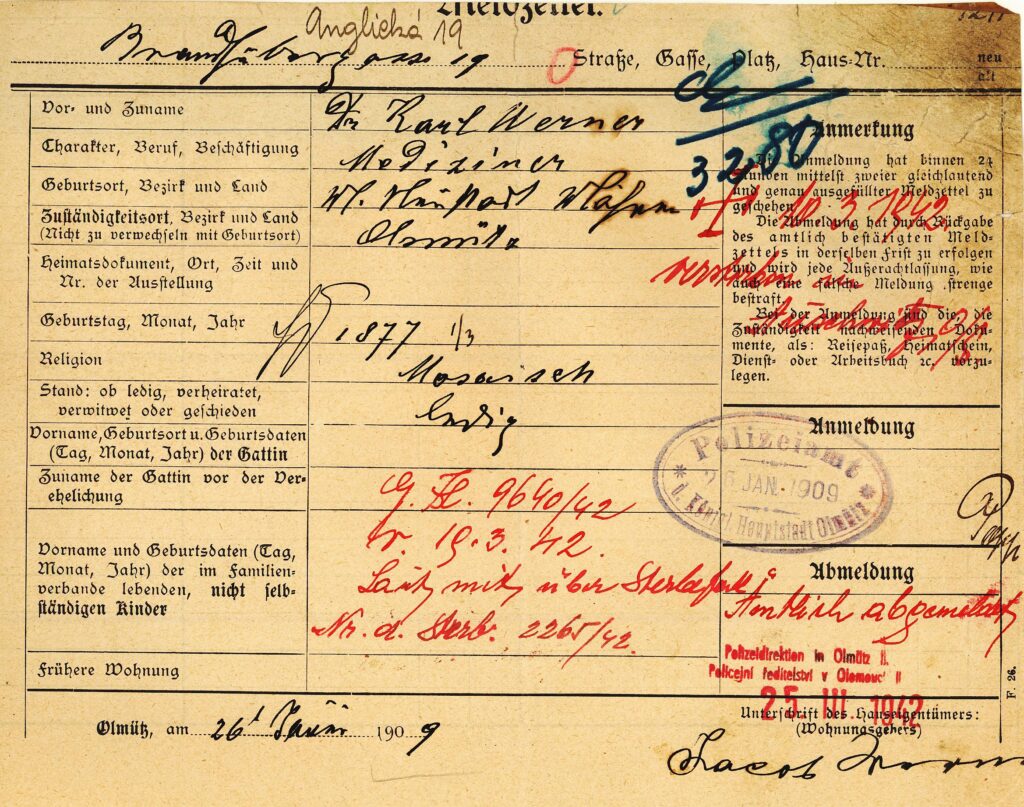 Meldzettel.
Anglická 19
19 Straße, Gasse, Platz, Haus-Nr. neu
alt
Vor- und Zuname Dr Karl Werner
Charakter, Beruf, Beschäftigung Mediziner
Geburtsort, Bezirk und Land
Zuständigkeitsort, Bezirk und Land
(Nicht zu verwechseln mit Geburtsort) Olmütz
Heimatsdokument, Ort, Zeit und
Nr. der Ausstellung
Geburtstag, Monat, Jahr 1877 1/3
Religion Mosaisch
Stand: ob ledig, verheiratet,
verwitwet oder geschieden ledig
Vorname, Geburtsort u. Geburtsdaten
(Tag, Monat, Jahr) der Gattin
Zuname der Gattin vor der Ver-
ehelichung
Vorname und Geburtsdaten (Tag,
Monat, Jahr) der im Familien-
verbande lebenden, nicht selb-
ständigen Kinder
9640/42
v. 19.3.42.
Laut mitt über Sterbefall
Nr. d. Sterb. 2265/42.
Frühere Wohnung
Olmütz, am 26 1909
3280
Anmerkung
Die Anmeldung hat binnen 24
Stunden mittelst zweier gleichlautend
und genau ausgefüllter Meldzettel zu
geschehen.
Die Abmeldung hat durch Rückgabe
des amtlich bestätigten Meld-
zettels in derselben Frist zu erfolgen
und wird jede Außerachtlassung, wie
auch eine falsche Meldung strenge
bestraft.
Bei der Anmeldung sind die, die
Zuständigkeit nachweisenden Doku-
mente, als: Reisepaß, Heimatschein,
Dienst- oder Arbeitsbuch 2c. vorzu-
legen.
3. 1942
verstorben in
Auschwitz
Anmeldung
Polizeiamt
JAN. 1909
d. königl. Hauptstadt Olmütz
Abmeldung
Amtlich abgemeldet
Polizeidirektion in Olmütz II.
Policejní ředitelství v Olomouci II
25 III 1942
Unterschrift des Hauseigentümers:
(Wohnungsgebers)
Jacob
F. 26.